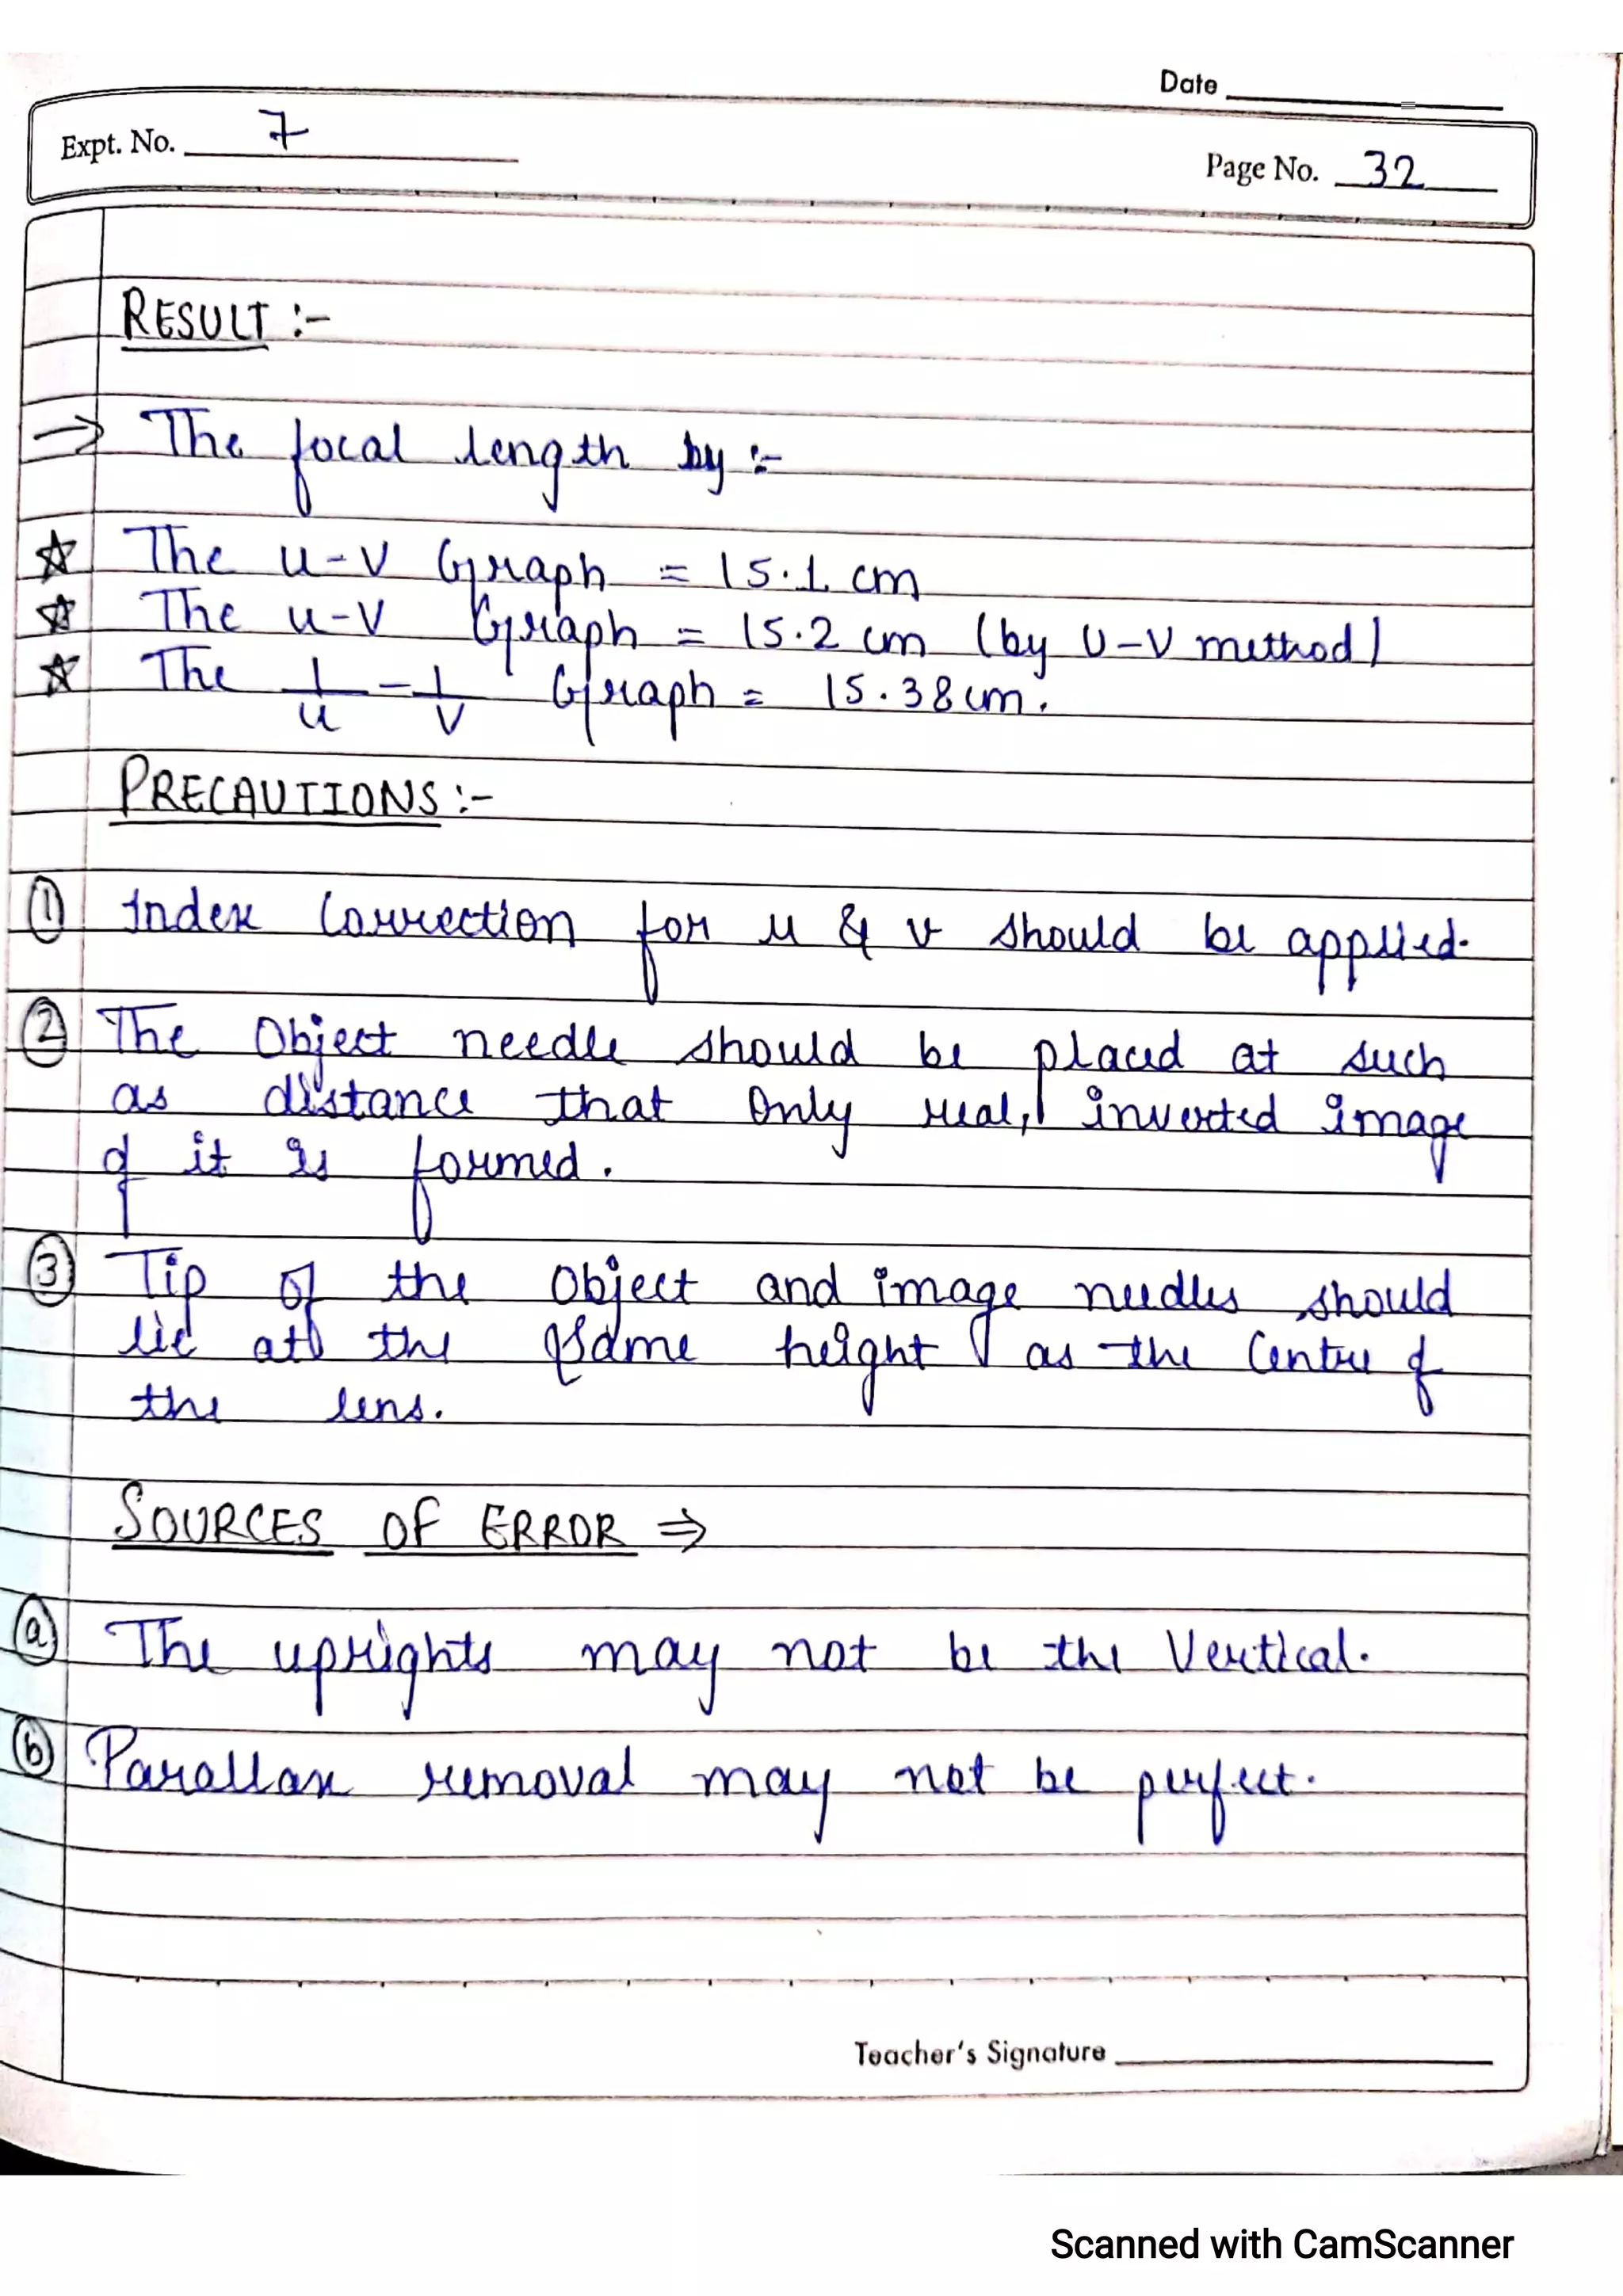 Date
Expt. No. 7
Page No. 32
RESULT :-
⇒ The focal length by :-
☆ The u-v Graph = 15.1 cm
☆ The u-v Graph = 15.2 cm (by U-V method)
☆ The 1/u - 1/v Graph = 15.38 cm.
PRECAUTIONS :-
① Index Correction for u & v should be applied.
② The Object needle should be placed at such
as distance that Only real, inverted image
of it is formed.
③ Tip of the Object and image needles should
lie at the same height as the Centre of
the lens.
SOURCES OF ERROR ⇒
ⓐ The uprights may not be the Vertical.
ⓑ Parallax removal may not be perfect.
Teacher's Signature
Scanned with CamScanner